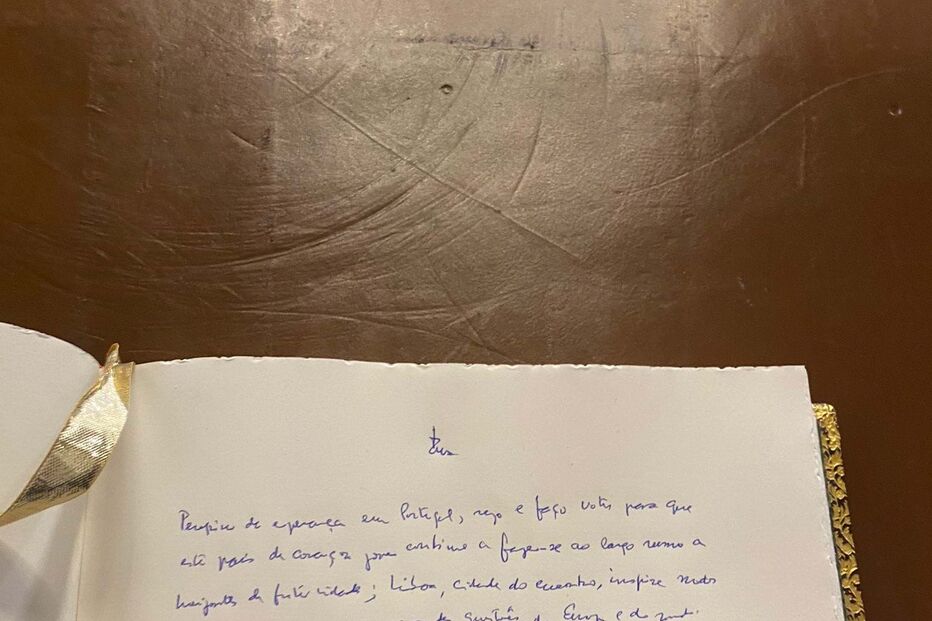 Peregrino de esperança em Portugal, rezo e faço votos para que
este país de coração jovem continue a fazer-se ao largo rumo a
horizontes de fraternidade; Lisboa, cidade do encontro, inspire modos
questões da Europa e do